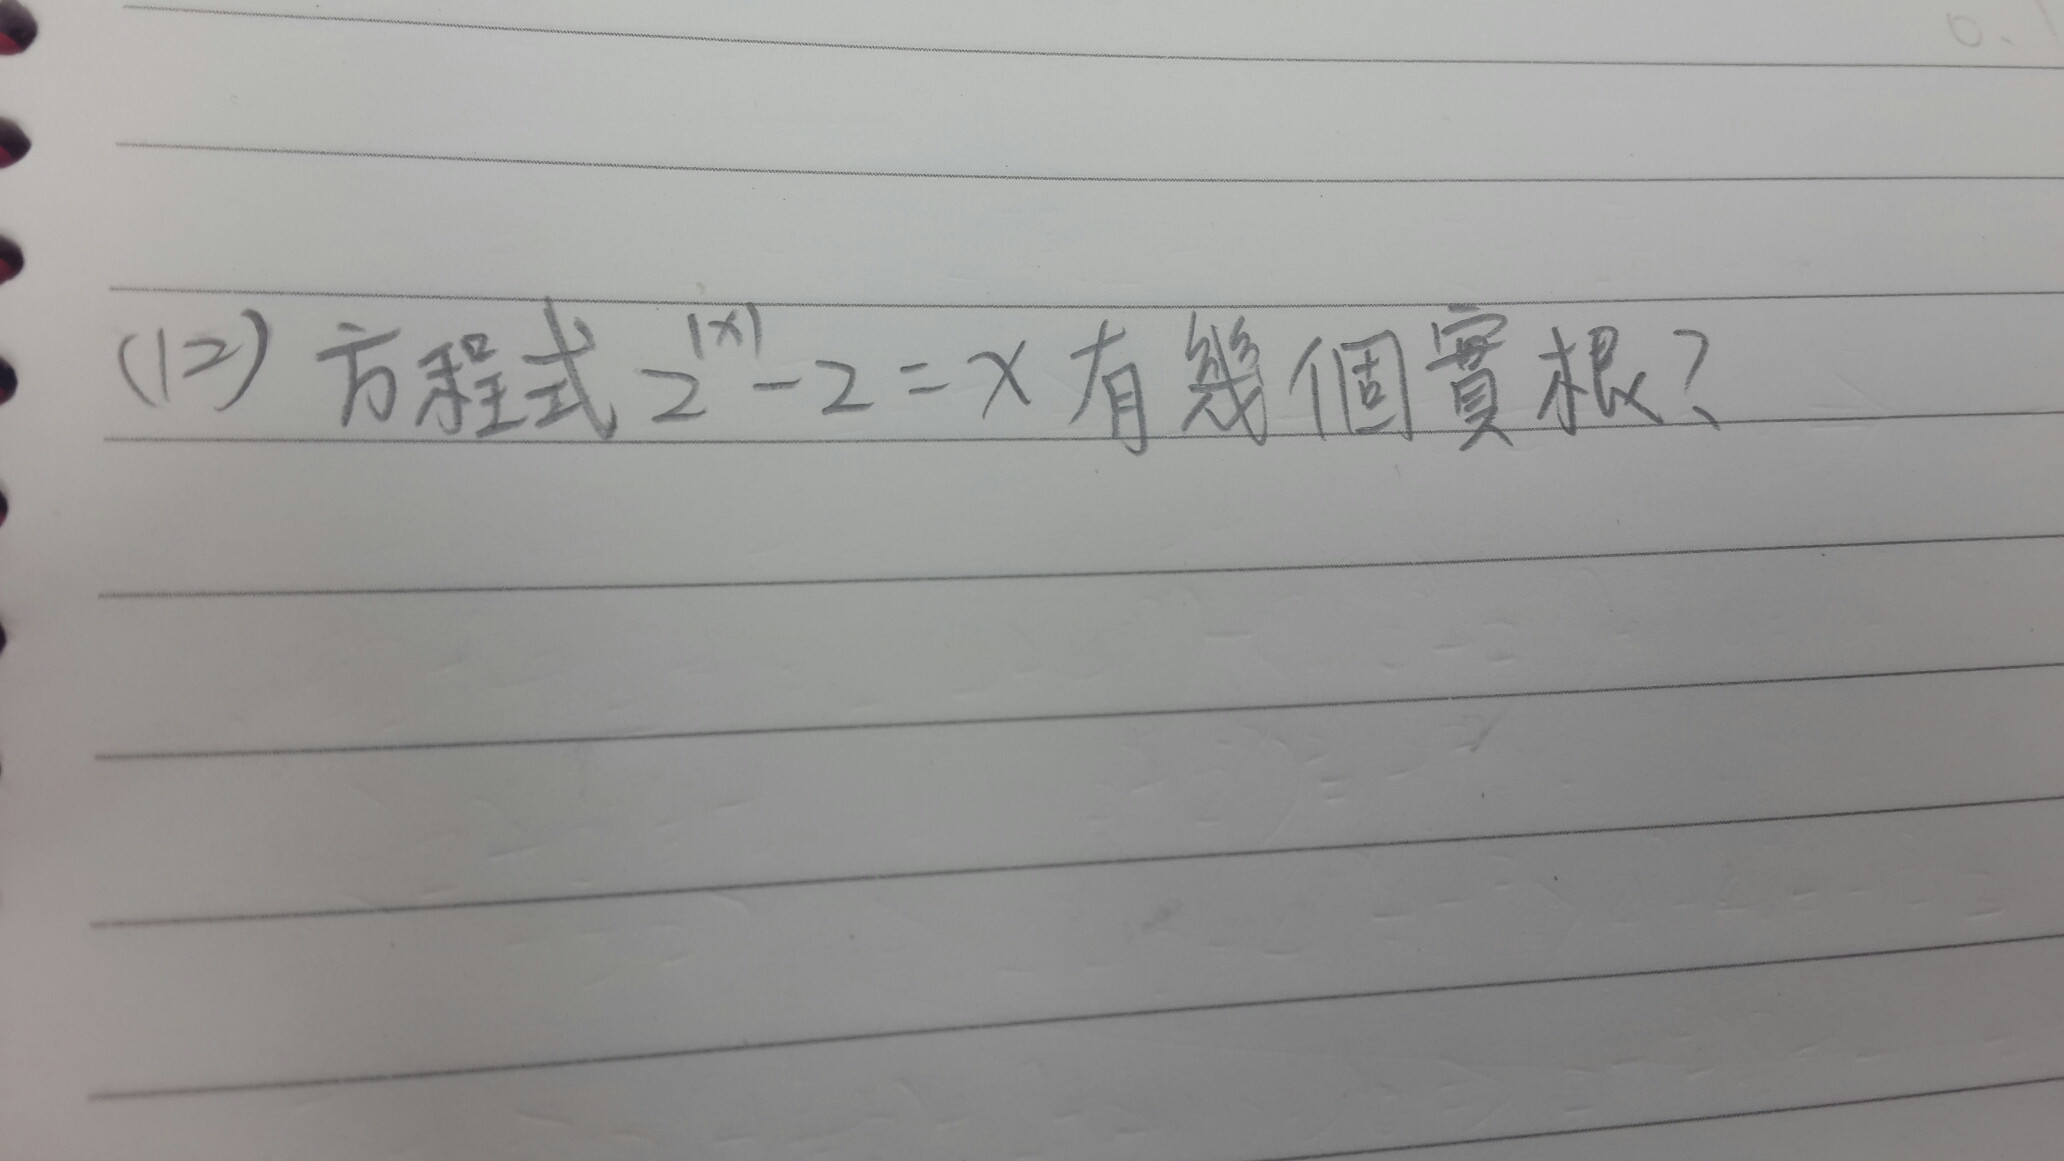 (12) 方程式 2^|x| - 2 = x 有幾個實根?
0.1